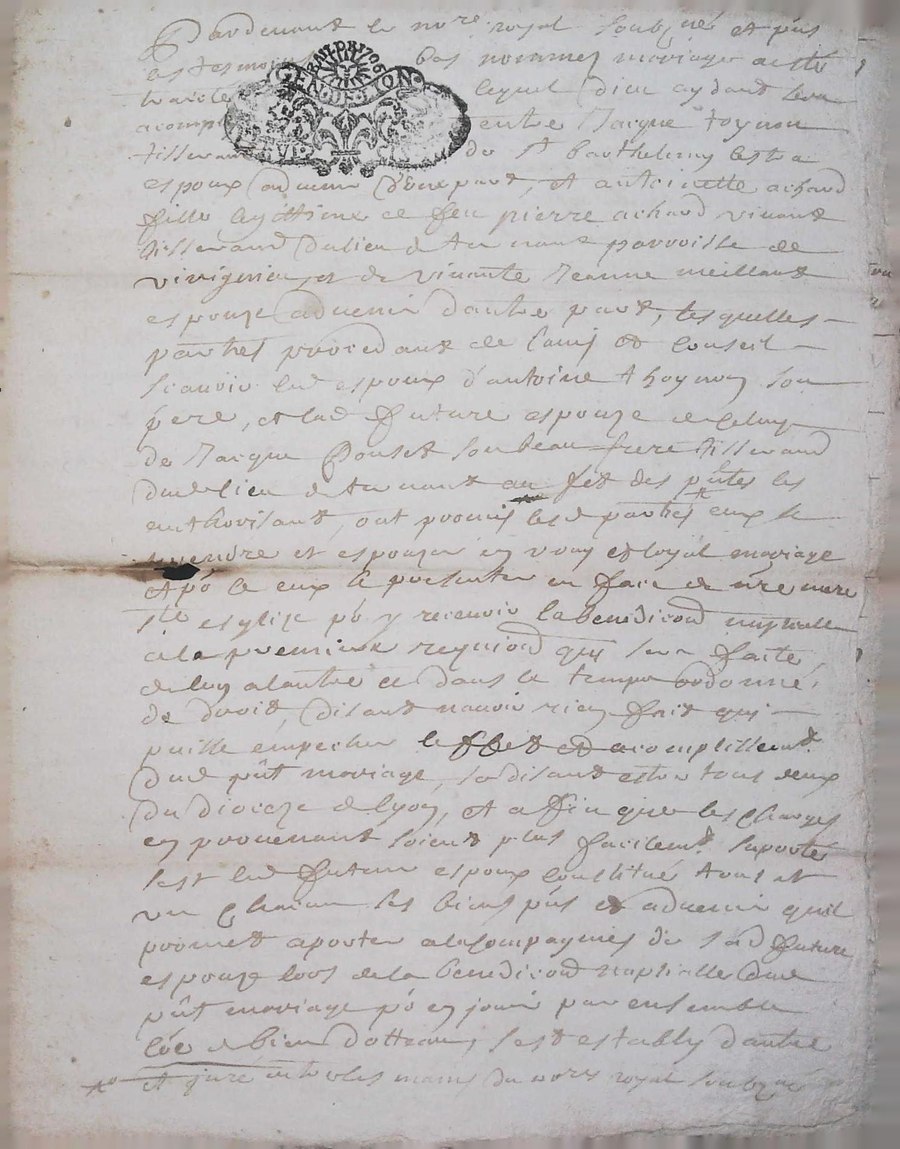 Pardevant le nore royal soubzné et pñs
les tesmoi bas nommes mariage a esté
traicté lequel dieu aydant sera
acompl entre Jacque toynon
tisseran de St barthelemy lestra
espoux advenir d'une part, et antoinette achard
fille legitime de feu pierre achard vivant
tisserand du lieu de parroisse de
et de vivante Jeanne meillant
espouze advenir d'autre part, lesquelles
parties procedant de lauis et conseil
scauoir led espoux d'antoine thoynon son
père, et lad future espouze de celuy
de Jacque Ponset son beau frere tisserand
dud lieu de au fet des pñtes les
authorisant, ont promis lesd parties eux se
prendre et espouzer en vray et loyal mariage
et pō ce eux se presenter en face de nre mere
ste esglize pō y recevoir la benediction nuptialle
a la premiere requiond qui sera faite
de luy a lautre et dans le temps ordonné
de droit, disant nauoir rien fait qui
puisse empecher leffet et acomplissent
dud pñt mariage, se disant estre tous deux
du dioceze de lyon, et affin que les charges
en prouenant soient plus facilemt suportés
sest led futur espoux constitué tous et
un chacun ses biens pñs et aduenir quil
promet aporter a la compagnies de sad future
espouze lors de la benediction nuptialle dud
pñt mariage pō en jouir par ensemble
côe de bien dotteau, sest estably dautre
et juré entre les mains du nore royal soubzné